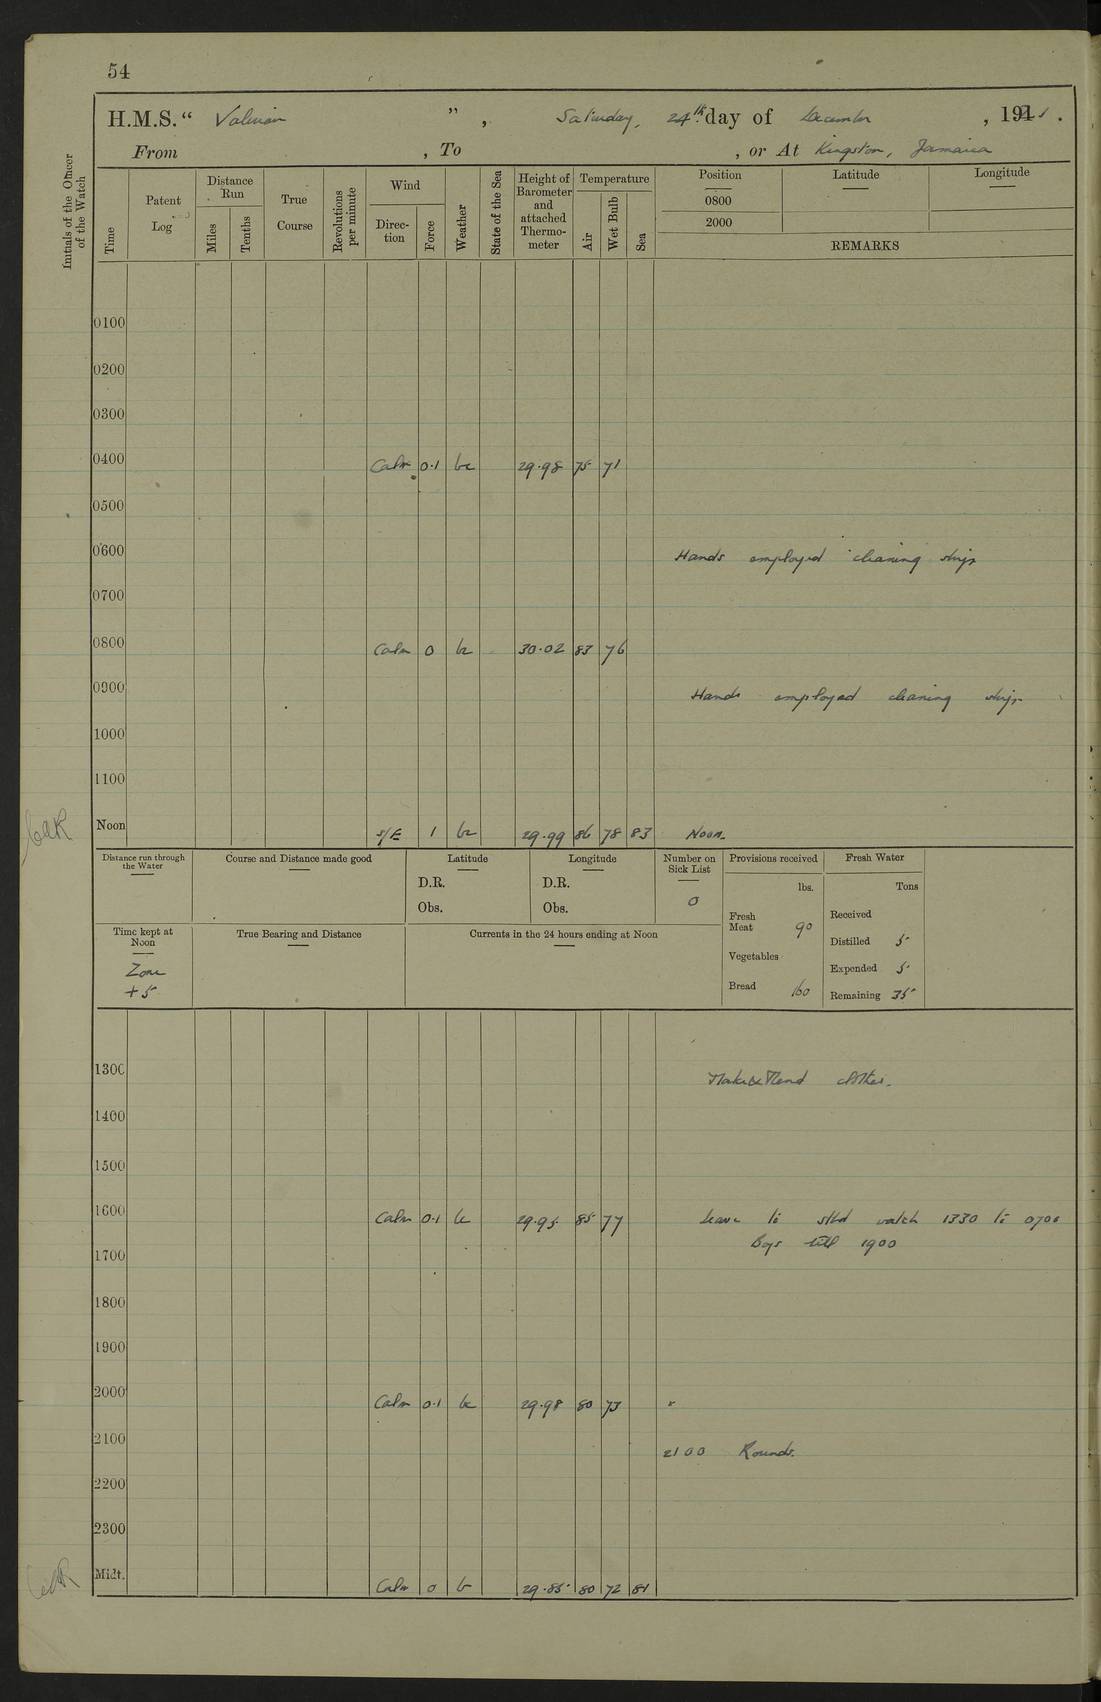 54
H.M.S. “ Valerian ” , Saturday, 24th day of December , 1921 .
From , To , or At Kingston, Jamaica
Initials of the Officer of the Watch
Time
Patent Log
Distance Run
Miles
Tenths
True Course
Revolutions per minute
Wind
Direction
Force
Weather
State of the Sea
Height of Barometer and attached Thermometer
Temperature
Air
Wet Bulb
Sea
Position
0800
2000
Latitude
Longitude
REMARKS
0100
0200
0300
0400 Calm 0.1 bc 29.98 75 71
0500
0600 Hands employed cleaning ship
0700
0800 Calm 0 bc 30.02 83 76
0900 Hands employed cleaning ship
1000
1100
Noon S/E 1 bc 29.99 86 78 83 Noon
Distance run through the Water
Course and Distance made good
Latitude
D.R.
Obs.
Longitude
D.R.
Obs.
Number on Sick List
0
Provisions received
lbs.
Fresh Meat 90
Vegetables
Bread 160
Fresh Water
Tons
Received
Distilled 5
Expended 5
Remaining 35
Time kept at Noon
Zone
+5
True Bearing and Distance
Currents in the 24 hours ending at Noon
1300 Make & Mend clothes.
1400
1500
1600 Calm 0.1 bc 29.95 85 77 Leave to stbd watch 1330 to 0700
Boys till 1900
1700
1800
1900
2000 Calm 0.1 bc 29.98 80 73
2100 2100 Rounds.
2200
2300
Midt. Calm 0 b 29.85 80 72 81